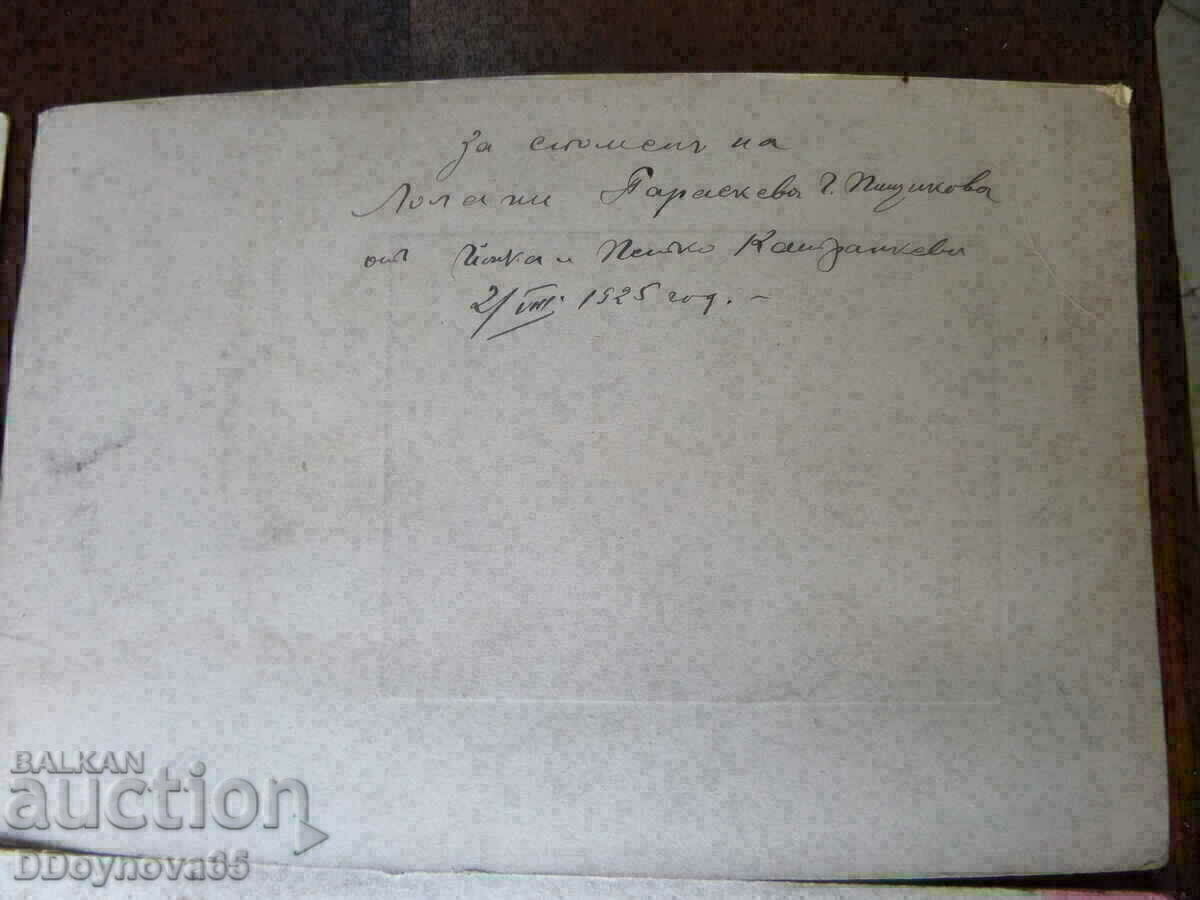 За споменъ на
Параскева Г. Пищикова
отъ Йонка и Петко Катранкеви
2/VIII 1925 год. –
BALKAN
auction
DDoynova65